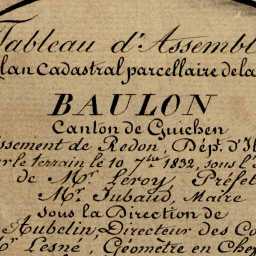 Tableau d'Assembl
lan Cadastral parcellaire de la
BAULON
Canton de Guichen
issement de Redon, Dép.t d'Il
r le terrain le 10 7.bre 1832, sous l'
de Mr. Leroy, Préfet
Mr. Jubaud, Maire
sous la Direction de
Aubelin, Directeur des Co
Mr. Lesné, Géomètre en Chef